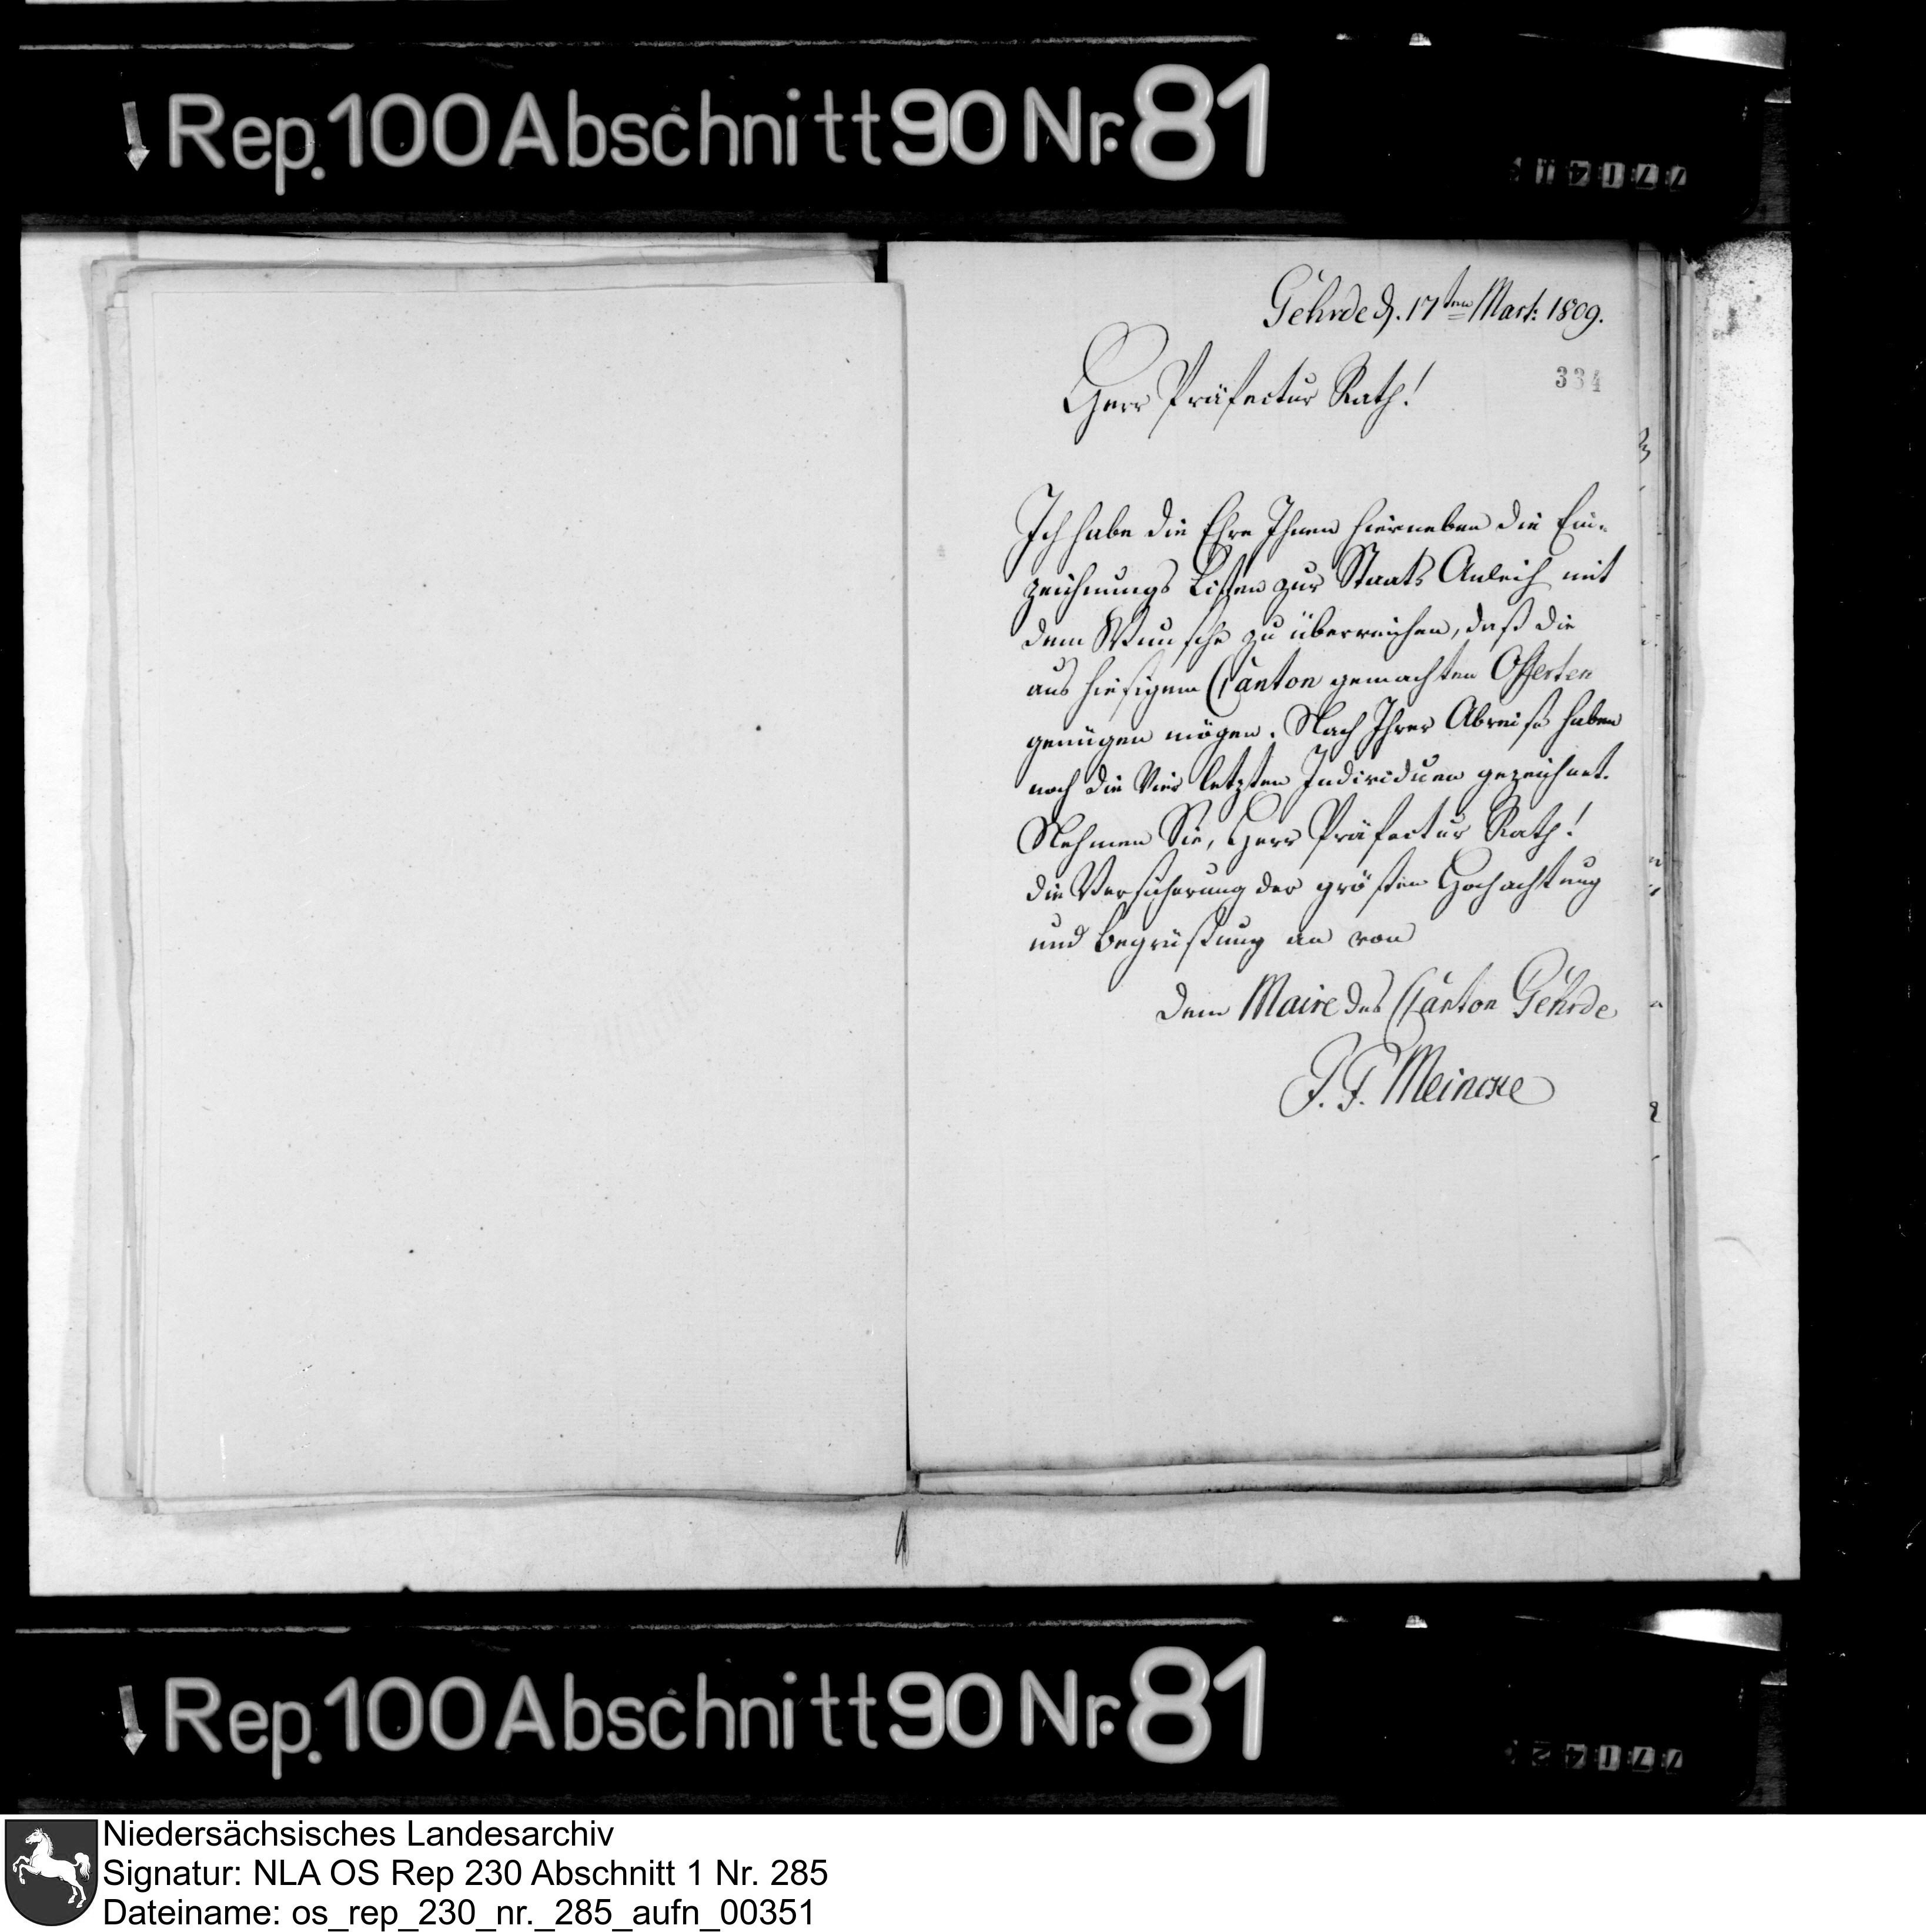 Rep. 100 Abschnitt 90 Nr. 81
Gehrde d. 17ten Mart: 1809.
334
Herr Präfectur Rath!
Ich habe die Ehre Ihnen hierneben die Ein-
zeichnungs Listen zur Staats Anleih mit
dem Wunsche zu überreichen, daß die
aus hiesigem Canton gemachten Offerten
genügen mögen. Nach Ihrer Abreise haben
noch die Vier letzten Individuen gezeichnet.
Nehmen Sie, Herr Präfectur Rath!
die Versicherung der größten Hochachtung
und Begrüßung an von
dem Maire des Canton Gehrde
F. F. Meincke
Rep. 100 Abschnitt 90 Nr. 81
Niedersächsisches Landesarchiv
Signatur: NLA OS Rep 230 Abschnitt 1 Nr. 285
Dateiname: os_rep_230_nr._285_aufn_00351